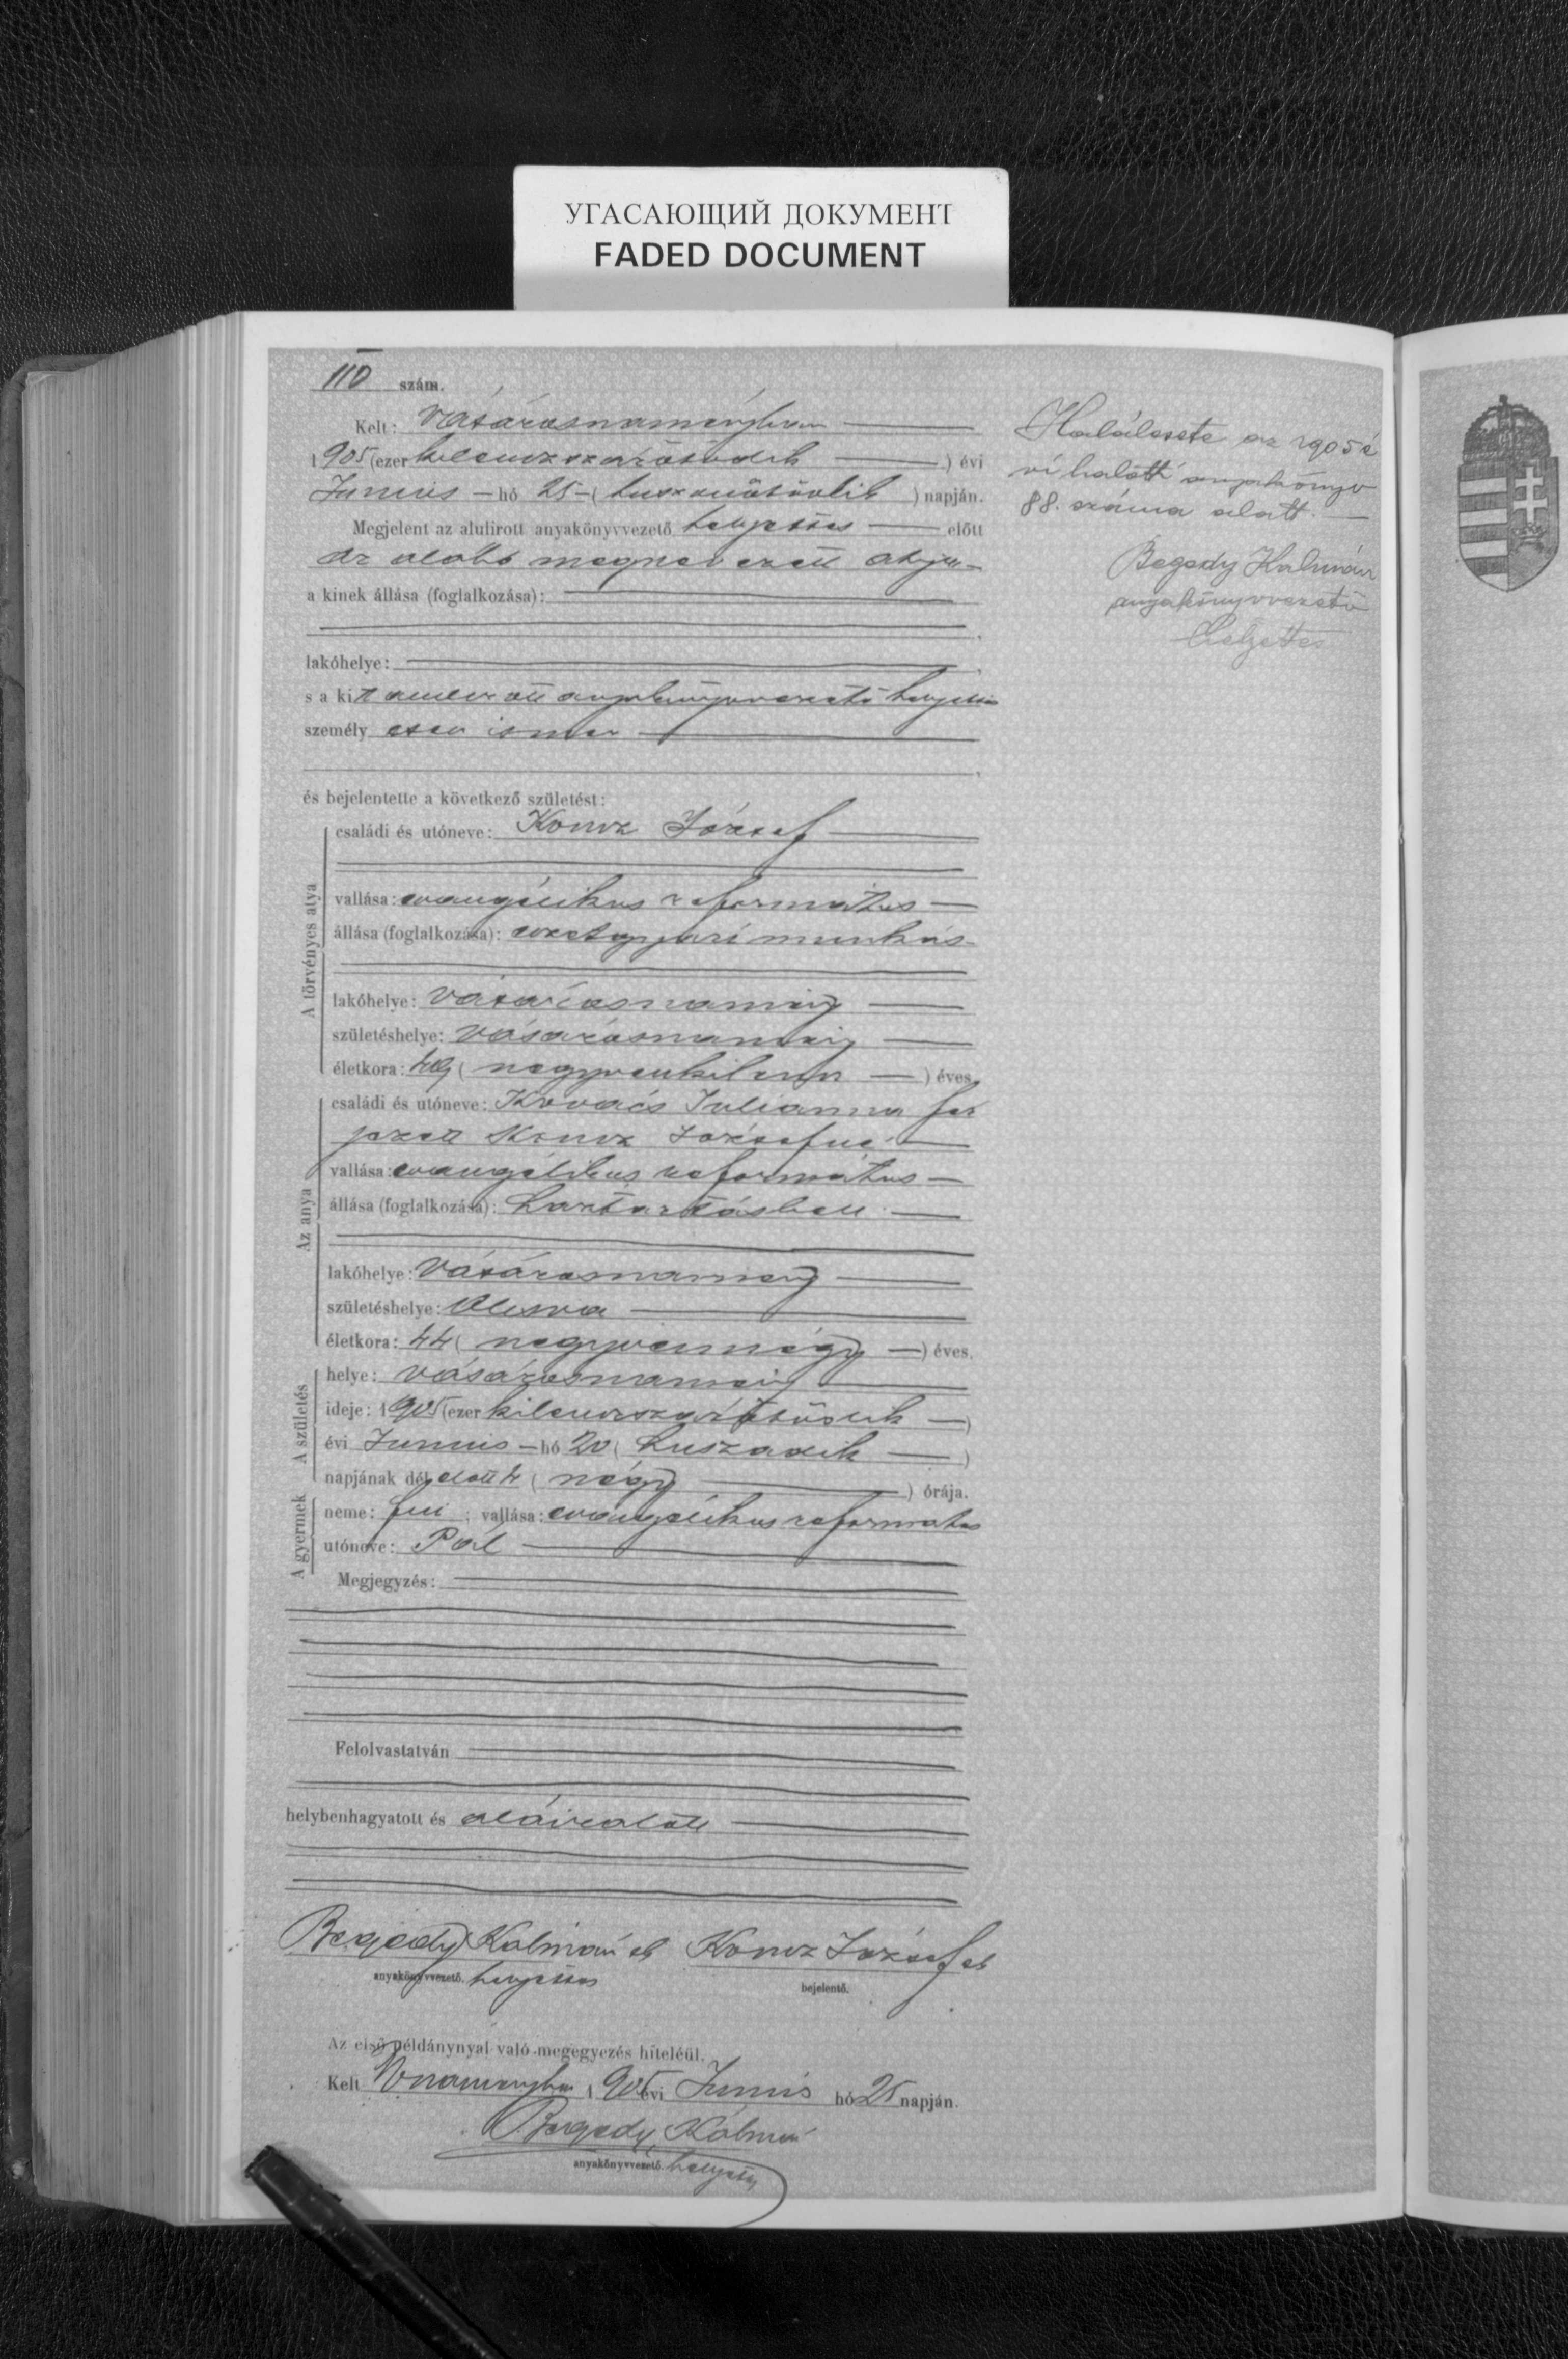 УГАСАЮЩИЙ ДОКУМЕНТ
FADED DOCUMENT
110 szám.
Kelt: Vásárosnaményban
1905 (ezer kilenczszázötödik) évi
Junius hó 25 (huszonötödik) napján.
Megjelent az alulirott anyakönyvvezető helyettes előtt
az alább megnevezett atya
a kinek állása (foglalkozása):
lakóhelye:
s a kit anyakönyvvezető helyettes
személy esen ismer
és bejelentette a következő születést:
A törvényes atya
családi és utóneve: Koncz József
vallása: evangélikus református
állása (foglalkozása): eczetgyári munkás
lakóhelye: Vásárosnamény
születéshelye: Vásárosnamény
életkora: 49 (negyvenkilencz) éves.
Az anya
családi és utóneve: Kovács Julianna fér
jezett Koncz Józsefné
vallása: evangélikus református
állása (foglalkozása): háztartásbeli
lakóhelye: Vásárosnamény
születéshelye: Olcsva
életkora: 44 (negyvennégy) éves.
A születés
helye: Vásárosnamény
ideje: 1905 (ezer kilenczszázötödik)
évi Junius hó 20 (huszadik)
napjának dél előtt 4 (négy) órája.
A gyermek
neme: fiu; vallása: evangélikus református
utóneve: Pál
Megjegyzés:
Felolvastatván
helybenhagyatott és aláiratott
Begedy Kálmán sk Koncz József sk
anyakönyvvezető. helyettes
bejelentő.
Az első példánynyal való megegyezés hiteléül.
Kelt Vnaményban 1905 évi Junius hó 25 napján.
Begedy Kálmán
anyakönyvvezető. helyettes
Halálesete az 1905 é
vi halotti anyakönyv
88. száma alatt.
Begedy Kálmán
anyakönyvvezető
helyettes